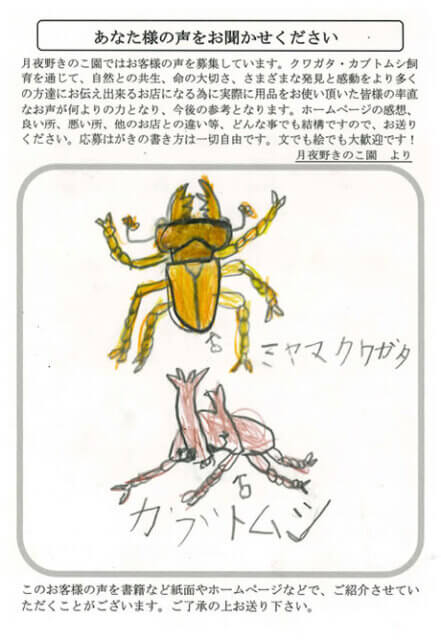 あなた様の声をお聞かせください
月夜野きのこ園ではお客様の声を募集しています。クワガタ・カブトムシ飼
育を通じて、自然との共生、命の大切さ、さまざまな発見と感動をより多く
の方達にお伝え出来るお店になる為に実際に用品をお使い頂いた皆様の率直
なお声が何よりの力となり、今後の参考となります。ホームページの感想、
良い所、悪い所、他のお店との違い等、どんな事でも結構ですので、お送り
ください。応募はがきの書き方は一切自由です。文でも絵でも大歓迎です！
月夜野きのこ園　より
♂
ミヤマクワガタ
♂
カブトムシ
このお客様の声を書籍など紙面やホームページなどで、ご紹介させてい
ただくことがございます。ご了承の上お送り下さい。